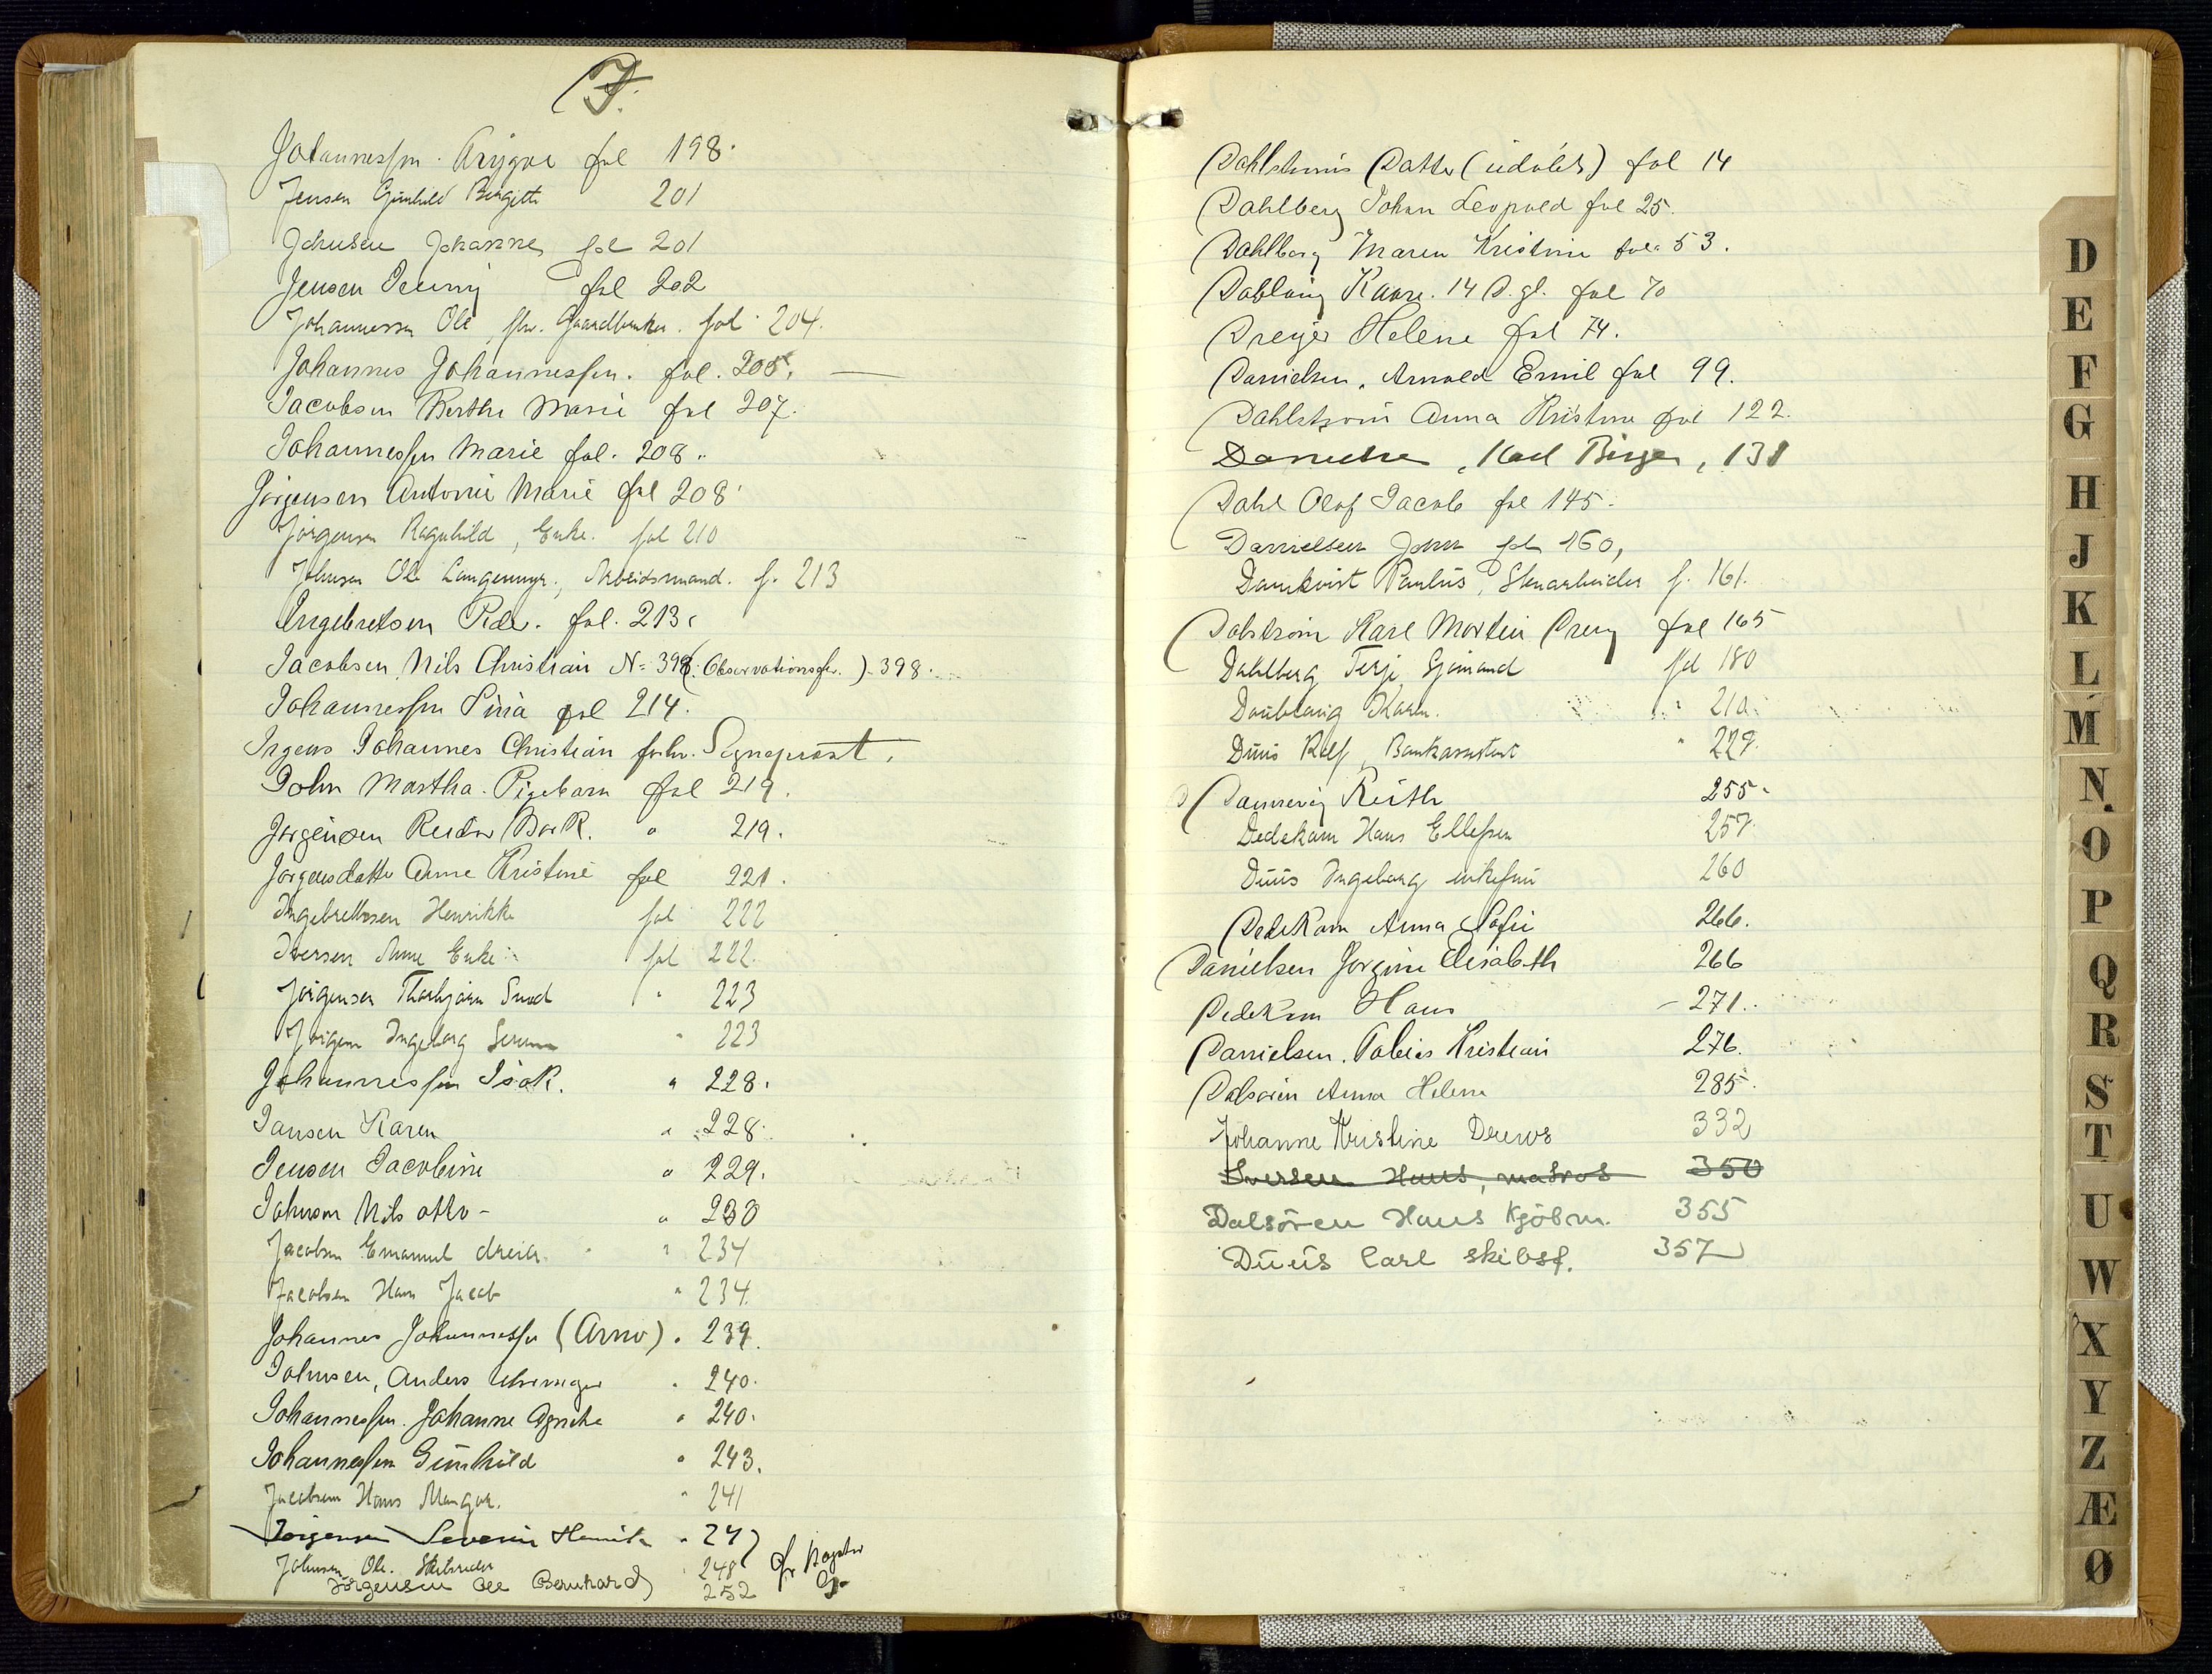 J.
Johannessen. Arygve fol 198.
Jensen Gunhild Birgitte 201
Johnsen Johannes fol 201
Jensen Jenny fol 202
Johannessen Ole, fhv. Gaardbruker. fol. 204.
Johannes Johannessen. fol. 205.
Jacobsen Berthe Marie fol 207.
Johannessen Marie fol. 208.
Jörgensen Antonie Marie fol 208.
Jörgensen Ragnhild, Enke. fol 210
Johnsen Ole Langemyr, Arbeidsmand. f. 213
Ingebretsen Peder. fol. 213.
Jacobsen, Nils Christian N= 398 (Observationsfr.) 398.
Johannessen Sina fol 214.
Irgens Johannes Christian forhv. Sogneprost.
John Martha. Pigebarn fol 219.
Jörgensen Reidar Bark. " 219.
Jörgensdatter Anne Kristine fol 221.
Ingebrethsen Henrikke fol 222
Iversen Anne Enke fol 222.
Jörgensen Thorbjörn Sund " 223
Jörgen Ingeborg Serine " 223
Johannessen Isak. " 228.
Jansen Karen " 228.
Jensen Jacobine " 229.
Johnson Nils Otto - " 230
Jacobsen Emanuel dreier " 234
Jacobsen Hans Jacob " 234
Johannes Johannessen (Arno) " 239.
Johnsen, Anders Uhrmager " 240.
Johannessen. Johanne Agnethe " 240.
Johannessen Gunhild " 243.
Jacobsen Hans Mangor. " 241
Jörgensen Severin Henrik " 247
Johnsen Ole. Skibsreder " 248
Jörgensen Ole Bernhard 252
Dahlströms Datter (udöbt) fol 14
Dahlberg Johan Leopold fol 25.
Dahlberg Maren Kristine fol. 53.
Döblong Kaare. 14 D. gl. fol 70
Dreyer Helene fol 74.
Danielsen, Arnold Emil fol 99.
Dahlström Anna Kristine fol 122.
Danielsen, Karl Birger, 131
Dahl Olaf Jacob fol 145.
Danielsen John fol 160,
Damkvist Paulus, Stenarbeider f. 161.
Dalström Karl Martin Preuy fol 165
Dahlberg Terje, Sjömand fol 180
Doubloug Karen. " 210.
Duus Rolf, Bankassistent " 229.
Dannevig Ruth 255.
Dedekam Hans Ellefsen 257.
Duus Ingeborg enkefru 260
Dedekam Anna Sofie 266.
Danielsen Jörgine Elisabeth 266
Dedekam Hans - 271.
Danielsen. Tobias Kristian 276.
Dalsören Anna Helene 285.
Johanne Kristine Drews 332
Iversen Hans, matros 350
Dalsören Hans Kjöbm. 355
Duus Carl skibsf. 357
D
E
F
G
H
J
K
L
M
N.
O
P
Q
R
S
T
U
W
X
Y
Z
Æ
Ø